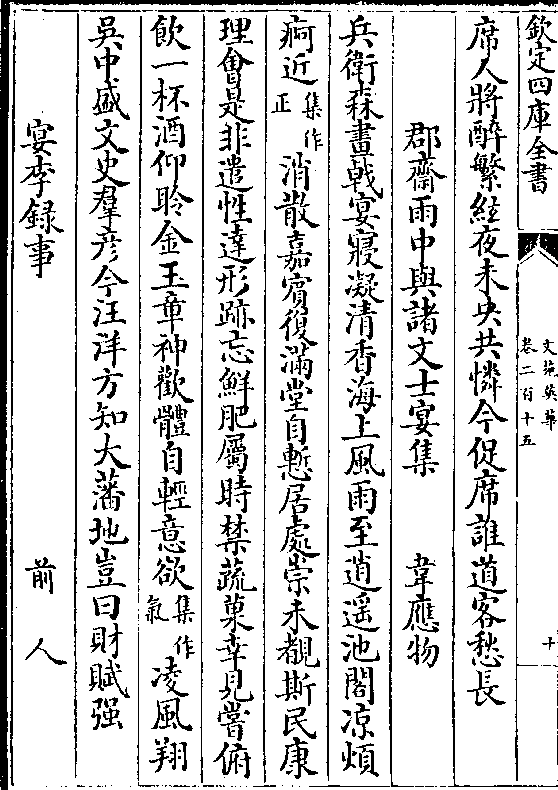 欽定四庫全書
文苑英華
卷二百十五
十
席人將醉繁絃夜未央共憐今促席誰道客愁長
郡齋雨中與諸文士宴集 韋應物
兵衛森畫㦸宴寢凝清香海上風雨至逍遥池閣凉煩
疴近集作正消散嘉賓復滿堂自慙居處崇未覩斯民康
理㑹是非遣性達形跡忘鮮肥屬時禁蔬菓幸見嘗俯
飲一杯酒仰聆金玉章神歡體自輕意欲集作氣凌風翔
吳中盛文史羣彦今汪洋方知大藩地豈曰財賦强
宴李録事 前人